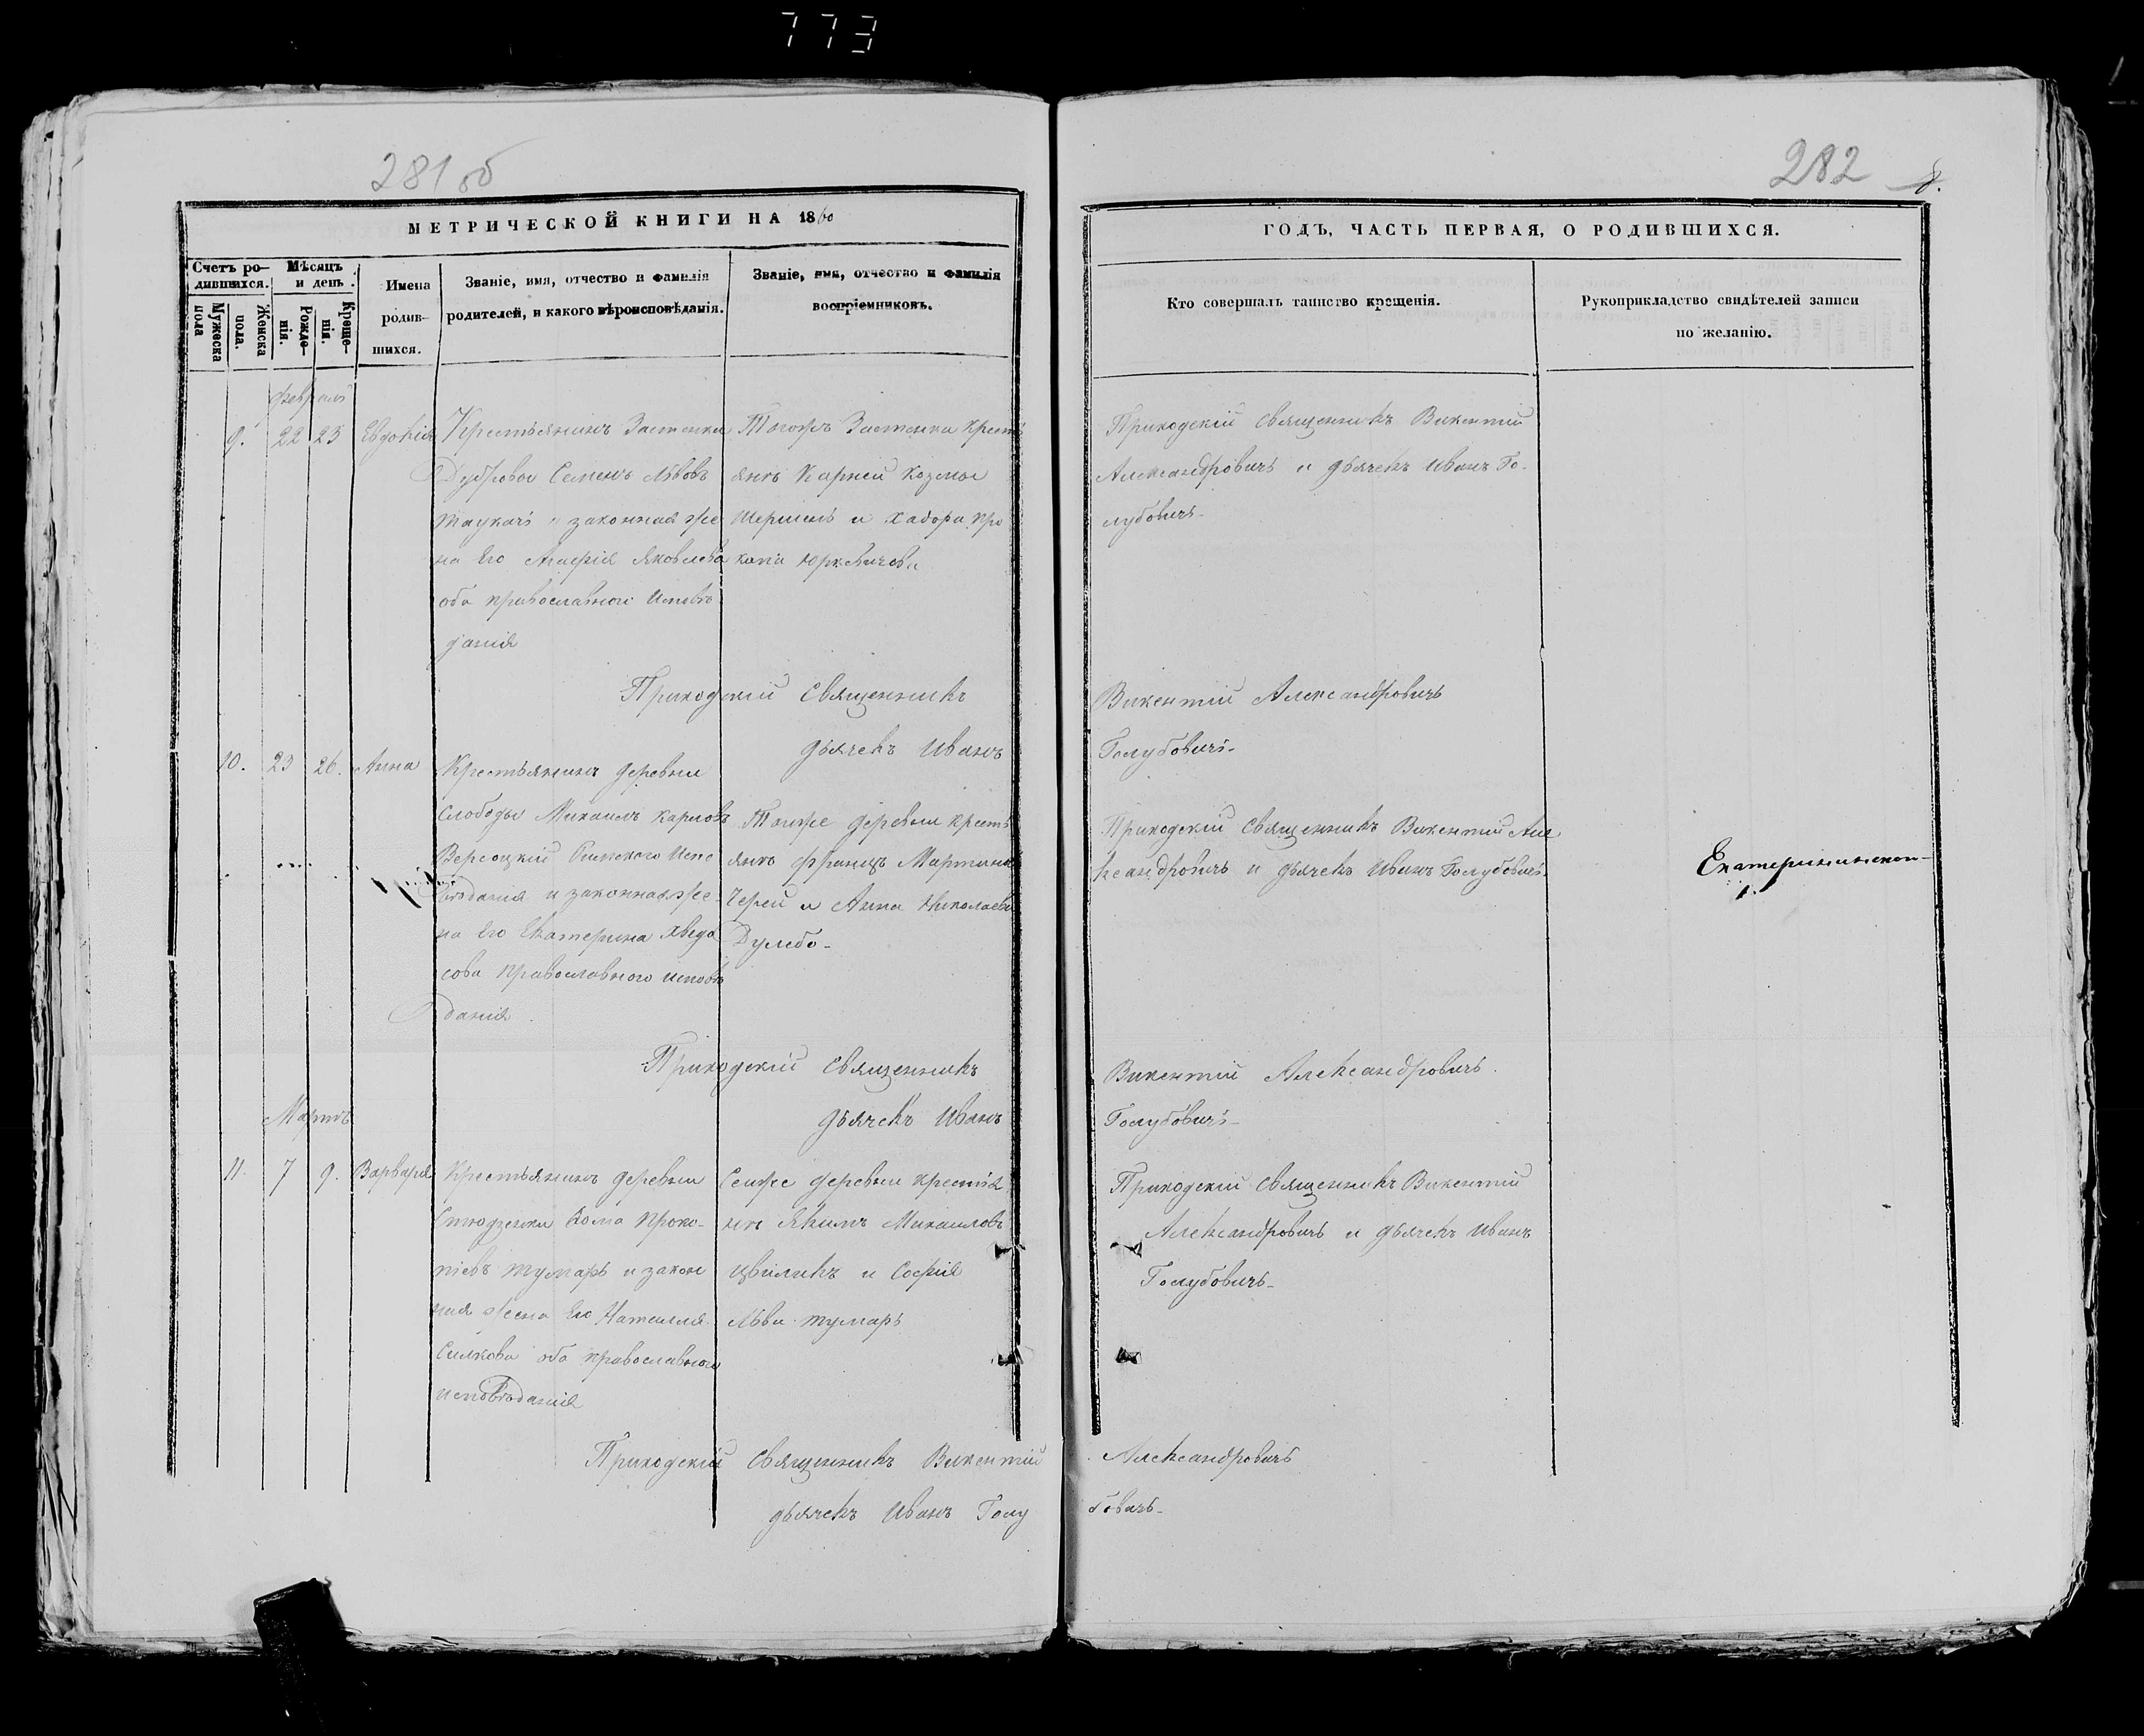 773
281 об
282
8.
МЕТРИЧЕСКОЙ КНИГИ НА 1860
ГОДЪ, ЧАСТЬ ПЕРВАЯ, О РОДИВШИХСЯ.
Счетъ ро-
дившихся.
Мужеска
пола
Женска
пола.
Мѣсяцъ
и день.
Рожде-
нія.
Креще-
нія.
Имена
родив-
шихся.
Званіе, имя, отчество и фамилія
родителей, и какого вѣроисповѣданія.
Званіе, имя, отчество и фамилія
воспріемниковъ.
Кто совершалъ таинство крещенія.
Рукоприкладство свидѣтелей записи
по желанію.
Февраль
9. 22 23 Евдокія
Крестьянинъ Застенка
Дуброва Семенъ Львовъ
и законная же
на Его Агафія Яковлева
оба православного Исповѣ
данія
Тогожъ Застенка крестьянъ
янъ Карней Козмы
Шершень и Хадора Про
копа Юркевичова
Приходскій Священникъ Викентій
Александровичъ и дьячекъ Иванъ Го-
лубовичъ-
Приходскій Священникъ Викентій Александровичъ
дьячекъ Иванъ Голубовичъ-
10. 23 26. Анна
Крестьянинъ деревни
Слободы Михаилъ Карловъ
Римского Испо
вѣданія и законная же-
на Его Екатерина
сова православного исповѣ
данія
Тогоже деревни крестьянъ
янъ Францъ Мартина
и Анна Николаева
Дулебо-
Приходскій Священникъ Викентій Але
ксандровичъ и дьячекъ Иванъ Голубовичъ-
Екатерининской-
Приходскій Священникъ Викентій Александровичъ.
дьячекъ Иванъ Голубовичъ-
Мартъ
11. 7 9. Варвара
Крестьянинъ деревни
Студзенки Фома Проко-
піевъ Тумаръ и закон
ная жена Его Наталля
Силкова оба православного
исповѣданія
Сейже деревни крестья
нъ Якимъ Михаиловъ
Цвиликъ и Софія
Льва Тумаръ
Приходскій Священникъ Викентій
Александровичъ и дьячекъ Иванъ
Голубовичъ-
Приходскій Священникъ Викентій Александровичъ
дьячекъ Иванъ Голубовичъ-